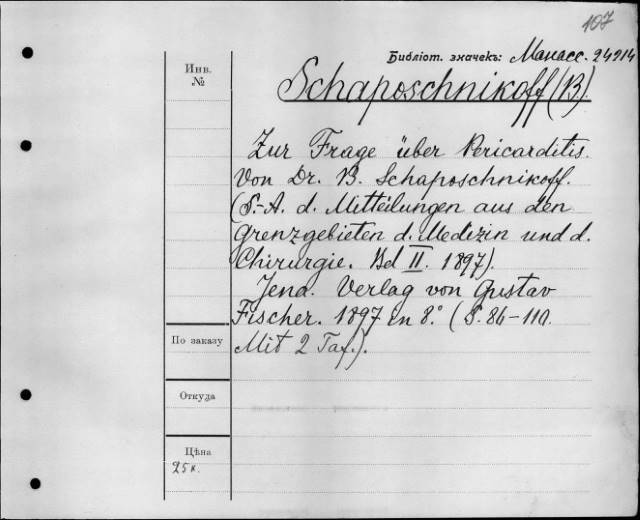 107
Библіот. значекъ: Манасс. 24914
Инв.
№
Schaposchnikoff (B)
Zur Frage über Pericarditis.
Von Dr. B. Schaposchnikoff.
(S.-A. d. Mitteilungen aus den
Grenzgebieten d. Medizin und d.
Chirurgie. Bd II. 1897).
Jena. Verlag von Gustav
Fischer. 1897 in 8.° (S. 86-110.
Mit 2 Taf.).
По заказу
Откуда
Цѣна
25 к.